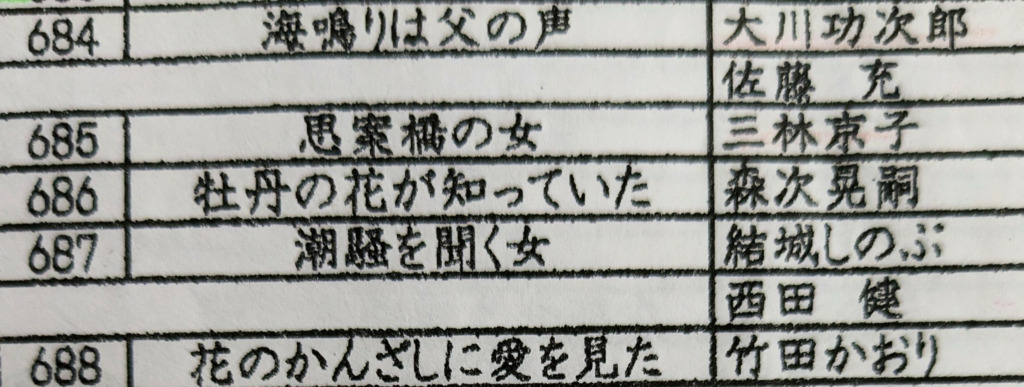 684 海鳴りは父の声 大川功次郎
佐藤 充
685 思案橋の女 三林京子
686 牡丹の花が知っていた 森次晃嗣
687 潮騒を聞く女 結城しのぶ
西田 健
688 花のかんざしに愛を見た 竹田かおり